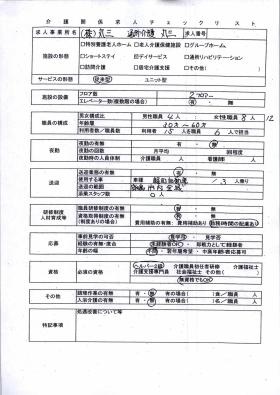 介護関係求人チェックリスト
求人事業所名 (株)丸三 通所介護 丸三 求人番号
施設の形態 □特別養護老人ホーム □老人介護保健施設 □グループホーム
□ショートステイ ☑デイサービス □通所リハビリテーション
□訪問介護 □居宅介護支援 □その他( )
サービスの形態 従来型 ユニット型
施設の設備 フロア数 2フロアー
エレベーター数(複数階の場合) (有)・無
職員の構成 男女構成比 男性職員 4人: 女性職員 8人 12
年齢層 30才~60才
利用者数/職員数 利用者 15人を職員 6人で担当
夜勤 夜勤の有無 有・(無)
夜勤の回数 月平均 回程度
夜勤時の人員体制 介護職員 看護師 人
送迎 送迎業務の有無 (有)・無
使用する車 車種 /3人乗り
送迎の範囲 市内全域
添乗スタッフ数 0人
研修制度 人材育成等 職員研修制度の有無 (有)・無
資格取得制度の有無 (有)・無
(制度ありの場合) 費用補助の有無:費用補助あり 勤務時間の配慮あり
応募 事前見学の可否 見学可・見学否
経験の有無・度合 未経験者OK・即戦力として経験者
年齢の幅 不問・若年層希望・中高年齢者応募可
資格 必須の資格 ヘルパー2級 介護職員初任者研修 介護福祉士
介護支援専門員 社会福祉士 その他( )
無資格でもOK
その他 調理作業の有無 有・(無) 有の場合( )食/職員
入浴介助の有無 有・(無) 有の場合( )名/職員 人
特記事項 処遇改善について等